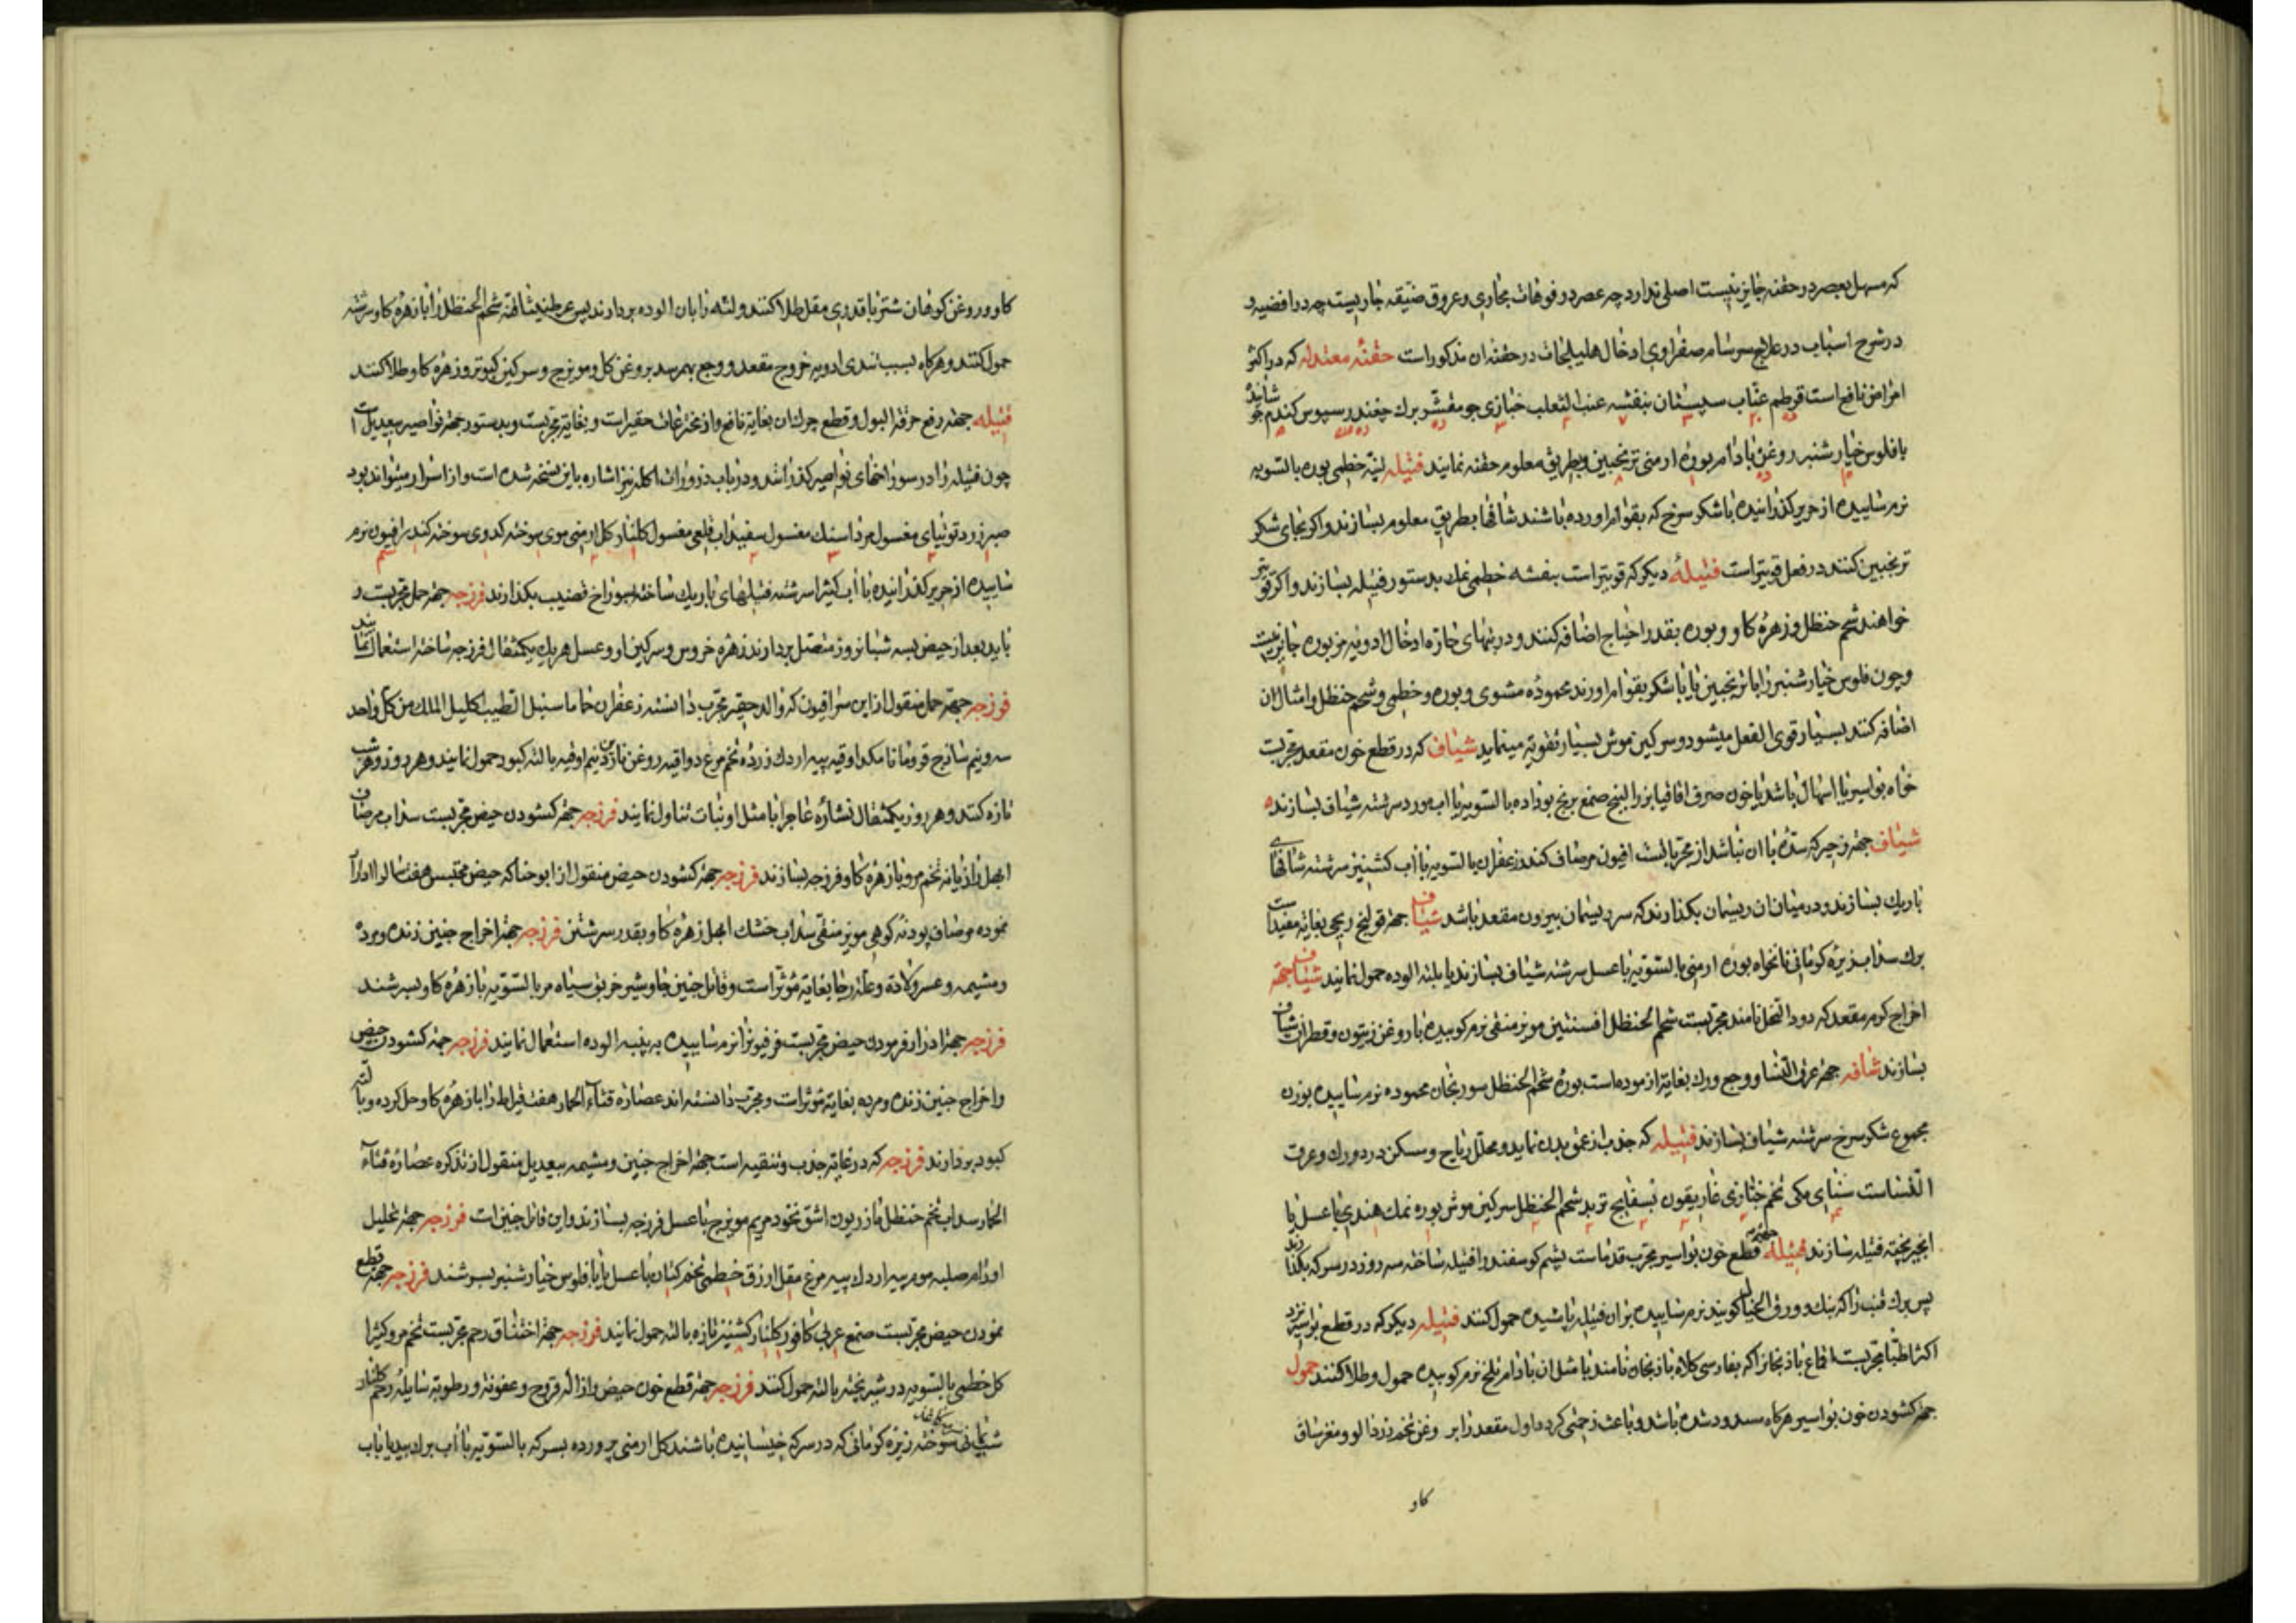 که مسهل بعصر در حقنه جایز نیست اصلی ندارد چه عصر در فوهات مجاری و عروق ضیقه جاریست چه در افضیه و
در شرح اسباب در علاج سرسام صفراوی ادخال هلیلجات در حقنه ان مذکور است حقنهٔ معتدله که در اکثر
امراض نافع است قرطم عناب سپستان بنفشه عنب الثعلب خبازی جو مقشر برك چغندر سبوس کندم
با فلوس خیار شنبر روغن بادام بوره ارمنی ترنجبین بطریق معلوم حقنه نمایند فتیله لینه خطمی بوره بالسویه
نرم ساییده از حریر کذرانیده با شکر سرخ که بقوام اورده باشند شافها بطریق معلوم بسازند و اکر بجای شکر
ترنجبین کنند در فعل قویتر است فتیلهٔ دیکر که قویتر است بنفشه خطمی نمك بدستور فتیله بسازند و اکر قویتر
خواهند شحم حنظل و زهرهٔ کاو و بوره بقدر احتیاج اضافه کنند و در تبهای حاره ادخال ادویه مزبوره جایز نیست
و چون فلوس خیار شنبر را با ترنجبین یا با شکر بقوام اورند محموده مشوی و بوره و خطمی و شحم حنظل و امثال ان
اضافه کنند بسیار قوی الفعل میشود و سرکین موش بسیار تقویة مینماید شیاف که در قطع خون مقعد مجربست
خواه بواسیر یا اسهال باشد یا خون صرف اقاقیا بزر البنج صمغ برنج بوداده بالسویه با اب مورد سرشته شیاف بسازند
شیاف جهة زحیر که سدّه با ان نباشد از مجرباتست افیون مرصاف کندر زعفران بالسویه با آب کشنیز سرشته شافهای
باریك بسازند و در میان ان ریسمان بکذارند که سر ریسمان بیرون مقعد باشد شیاف جهة قولنج ریحی بغایة مفید است
برك سداب زیره کرمانی نانخواه بوره ارمنی بالسویه با عسل سرشته شیاف بسازند یا بلته الوده حمول نمایند شیاف جهة
اخراج کرم مقعد که دود الخل نامند مجربست شحم الحنظل افسنتین مویز منقی نرم کوبیده با روغن زیتون و قطران شیاف
بسازند شافه جهة عرق النسا و وجع ورك بغایة ازموده است بوره شحم الحنظل سورنجان محموده نرم ساییده بوزن
مجموع شکر سرخ سرشته شیاف بسازند فتیله که جذب از عمق بدن نماید و محلل ریاح و مسکن درد ورك و عرق
النساست سنای مکی تخم خبازی غاریقون بسفایج تربد شحم الحنظل سرکین موش بوره نمك هندی با عسل یا
انجیر پخته فتیله سازند فتیله جهة قطع خون بواسیر مجرب قدماست پشم کوسفند را فتیله ساخته سه روز در سرکه بکذارند
پس برك قنب را که بنك و ورق الخیال کویند نرم ساییده بران فتیله پاشیده حمول کنند فتیله دیکر که در قطع بواسیر نزد
اکثر اطبا مجربست اقماع باذنجان را که بفارسی کلاه باذنجان نامند با مثل ان بادام تلخ نرم کوبیده حمول و طلا کنند حمول
جهة کشودن خون بواسیر هرکاه مسدود شده باشد و باعث زحمتی کردد اول مقعد را بروغن تخم زردالو و مغز ساق
کاو
کاو و روغن کوهان شتر با قدری مقل طلا کنند و لته را بان الوده بردارند پس عرطنیثا شحم الحنظل را با زهرهٔ کاو سرشته
حمول کنند و هرکاه بسبب تندی ادویه خروج مقعد و وجع بهم رسد بروغن کل و مویزج و سرکین کبوتر و زهرهٔ کاو طلا کنند
فتیله جهة رفع حرقة البول و قطع چرك ان بغایة نافع و از مخترعات حقیر است و بغایة مجربست و بدستور جهة نواصیر بیعدیل است
چون فتیله را در سوراخهای نواصیر کذرانند و در باب ذرورات اکله نیز اشاره باین نسخه شده است و از اسرار میتواند بود
صبر زرد توتیای مغسول مرداسنك مغسول سفیداب قلعی مغسول کلنار کل ارمنی موی سوخته کدوی سوخته کندر افیون نرم
ساییده از حریر کذرانیده با آب کثیرا سرشته فتیلهای باریك ساخته بسوراخ قضیب بکذارند فرزجه جهة حمل مجربست و
باید بعد از حیض بسه شبانروز متصل بردارند زهرهٔ خروس و سرکین او و عسل هر یك یکمثقال فرزجه ساخته استعمال نمایند
فرزجه جهة حمل منقول از ابن سرافیون که والد حقیر مجرب دانسته زعفران حماما سنبل الطیب اکلیل الملك من کل واحد
سه و نیم ساذج قردمانا مکد اوقیه پیه اردك زرده تخم مرغ دو اوقیه روغن ناردین نیم اوقیه بالته کبود حمول نمایند و هر روز و هر شب
تازه کنند و هر روز یکمثقال نشاره عاج را با مثل او نبات تناول نمایند فرزجه جهة کشودن حیض مجربست سداب مرصاف
ابهل رازیانه تخم مرو با زهرهٔ کاو فرزجه بسازند فرزجه جهة کشودن حیض منقول از ابو حنا که حیض محتبس هفت ساله را ادرار
نموده مرصاف پودنه کوهی مویز منقی سداب خشك ابهل زهرهٔ کاو بقدر سرشتن فرزجه جهة اخراج جنین زنده و مرده
و مشیمه و عسر ولادة و علة رجا بغایة مؤثر است و قاتل جنین جاوشیر خربق سیاه مر بالسویه با زهرهٔ کاو بسرشند
فرزجه جهة ادرار فرمودن حیض مجربست فرفیون را نرم ساییده به پنبه الوده استعمال نمایند فرزجه جهة کشودن حیض
و اخراج جنین زنده و مرده بغایة مؤثر است و مجرب دانسته اند عصاره قثاء الحمار هفت قیراط را با زهرهٔ کاو حل کرده و با لته
کبود بردارند فرزجه که در غایة جذب و تنقیه است جهة اخراج جنین و مشیمه بیعدیل منقول از تذکره عصارهٔ قثاء
الحمار سداب تخم حنظل مازریون اشق بخور مریم مویزج با عسل فرزجه بسازند و این قاتل جنین است فرزجه جهة تحلیل
اورام صلبه موم پیه اردك پیه مرغ مقل ازرق خطمی تخم کتان با عسل یا با فلوس خیار شنبر بسرشند فرزجه جهة قطع
نمودن حیض مجربست صمغ عربی کافور کلنار کشنیز تازه بالته حمول نمایند فرزجه جهة اختناق رحم مجربست تخم مرو کثیرا
کل خطمی بالسویه در شیر پخته بالته حمول کنند فرزجه جهة قطع خون حیض و ازاله قروح و عفونة و رطوبة سایله رحم کلنار
شب یمانی سوخته زیره کرمانی که در سرکه خیسانیده باشند کل ارمنی پرورده بسرکه بالسویه با آب برك بید یا باب